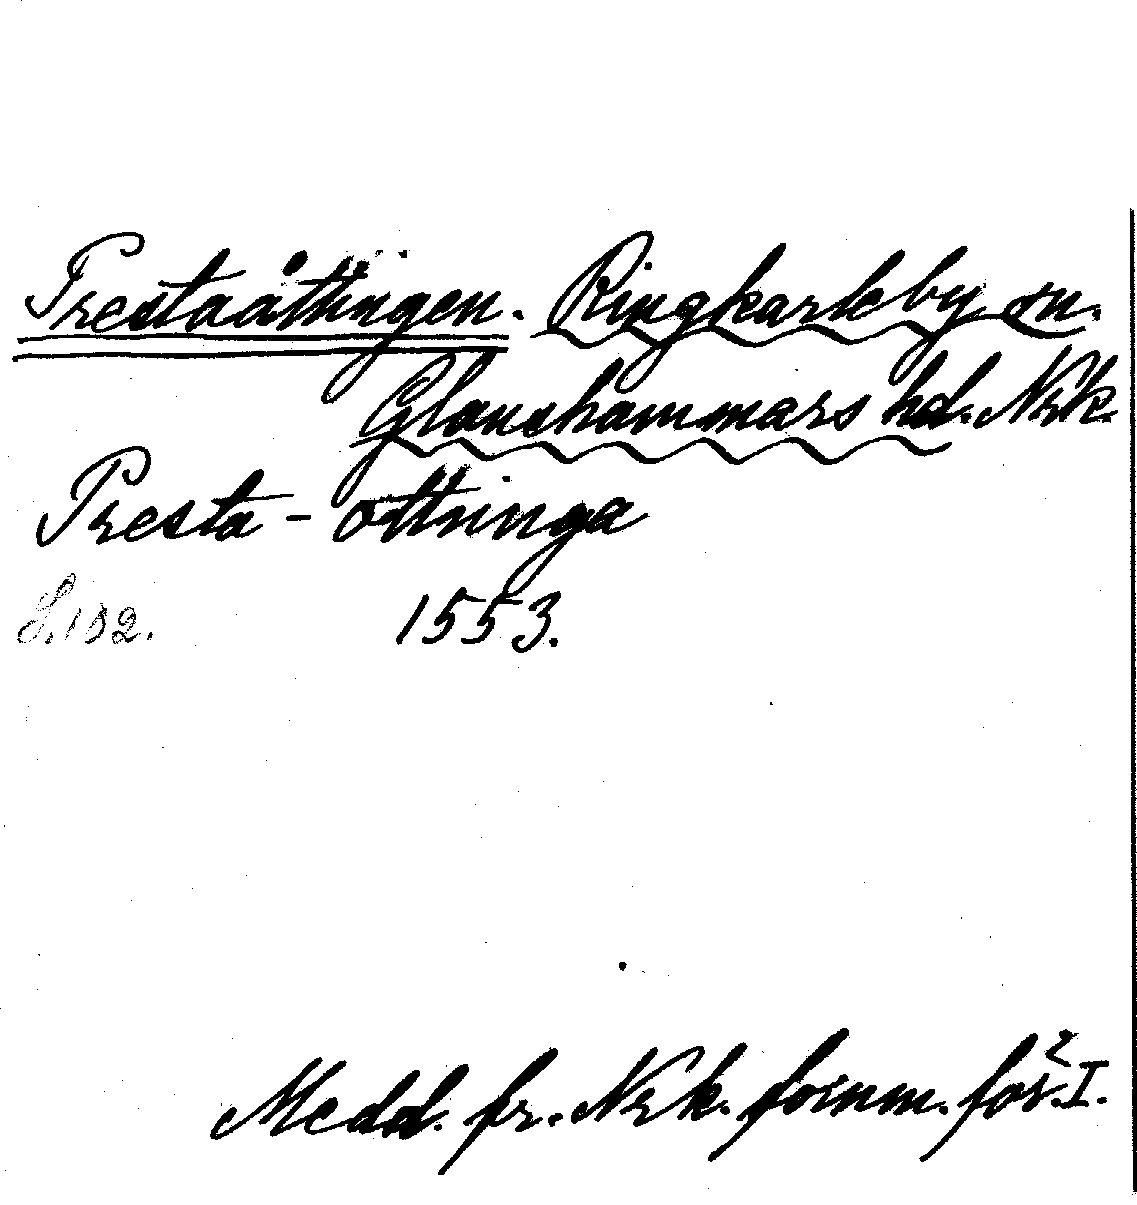 Prestaåttingen. Ringkarleby sn.
Glanshammars hd. Nrk.
Presta - ottringa
S. 132. 1553.
Medd. fr. Nrk. fornm. för. I.